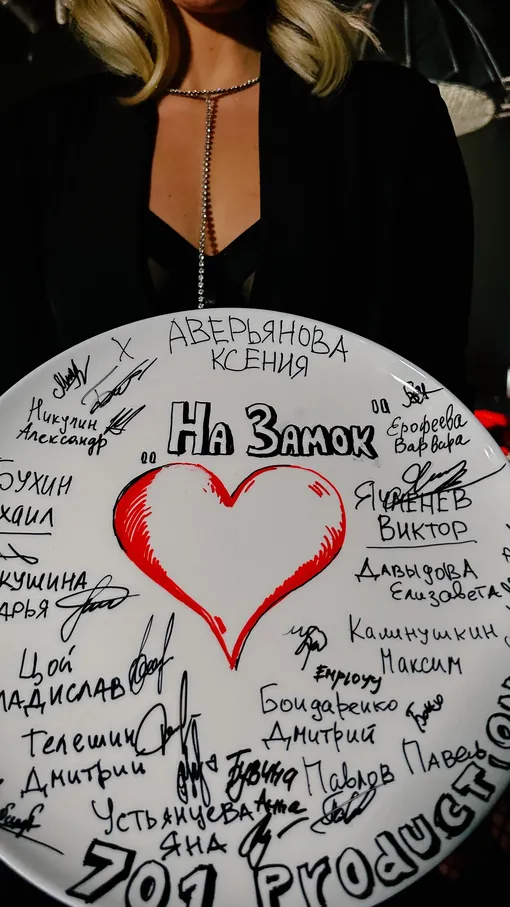 АВЕРЬЯНОВА
КСЕНИЯ
Никулин
Александр
"На Замок"
Ерофеева
Варвара
БУХИН
ХАИЛ
ЯЧМЕНЕВ
ВИКТОР
КУШИНА
АРЬЯ
ДАВЫДОВА
Елизавета
Цой
ЛАДИСЛАВ
Калинушкин
Максим
Телешин
Дмитрий
Бондаренко
Дмитрий
Павлов Павел
Устьянцева
Яна
701 PRODUCTION